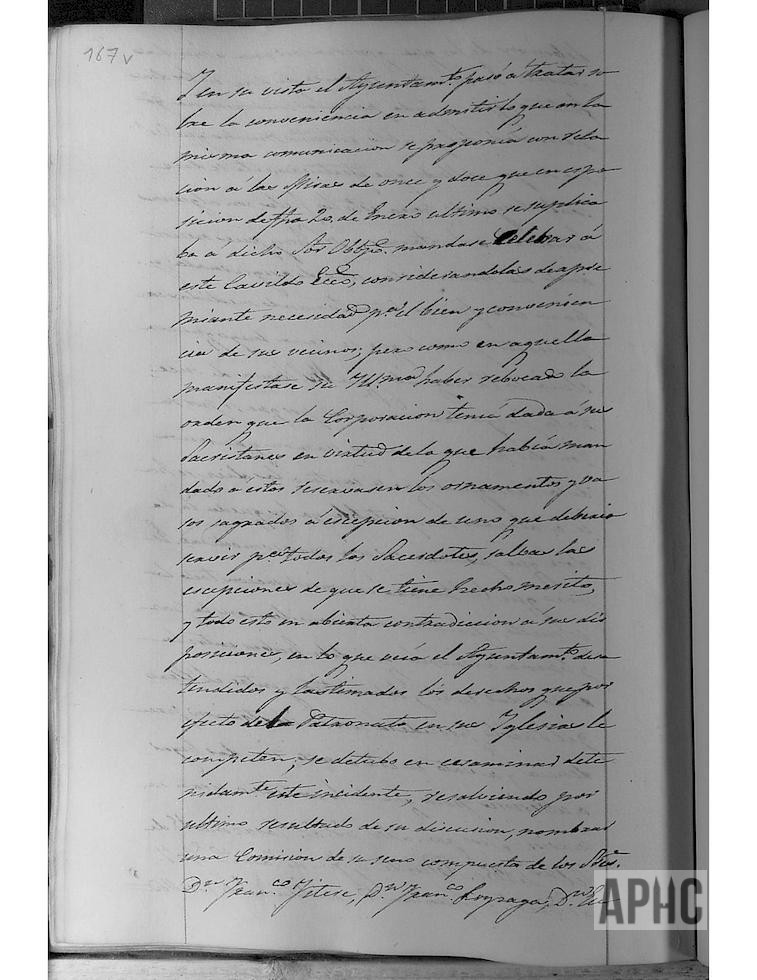 167v
Y en su vista el Ayuntamto. pasó á tratar so
bre la conveniencia en admitir lo que en la
misma comunicacion se proponia con rela
cion á las Misas de once y doce que en espo
sicion de fha 20, de Enero ultimo se suplica
ba á dicho Sor. Obpo. mandase celebrar á
este Cavildo Ecco, considerandolas de apre
miante necesidad pa. el bien y convenien
cia de sus vecinos; pero como en aquella
manifestase su Yllma. haber rebocado la
orden que la Corporacion tenia dada á sus
Sacristanes en virtud de la que habia man
dado a estos reservasen los ornamentos y va
sos sagrados á escepcion de uno que debiera
servir pa. todos los Sacerdotes, salbas las
escepciones de que se tiene hecho merito,
y todo esto en abierta contradiccion á sus dis
posiciones, en lo que veia el Ayuntamto. desa
tendidos y lastimados los derechos que por
efecto de la Patronato en sus Yglesias le
competen; se detubo en ecsaminar dete
nidamte. este incidente, resolviendo por
ultimo resultado de su discusion, nombrar
una Comision de su seno compuesta de los Sres.
Dn. Franco. Dn. Franco. Loyzaga, Dn.
APHC